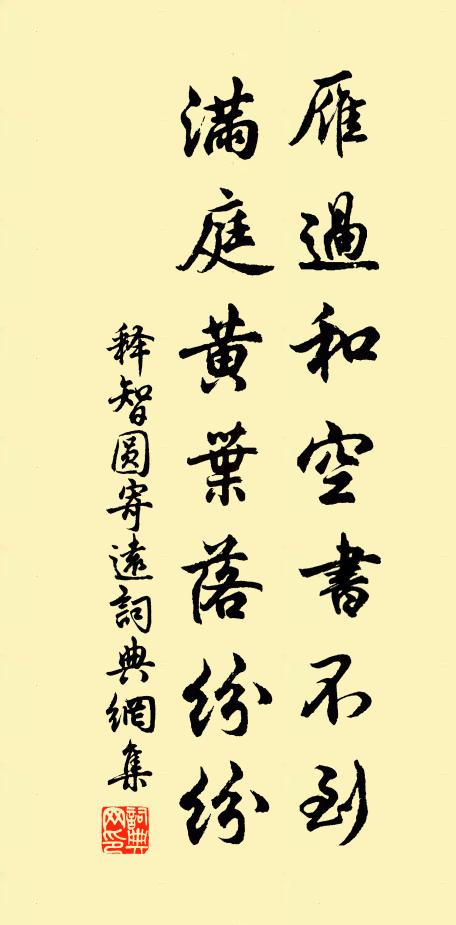 雁過和空書不到
滿庭黃葉落紛紛
释智圆寄遠詞典網集
詞典网印